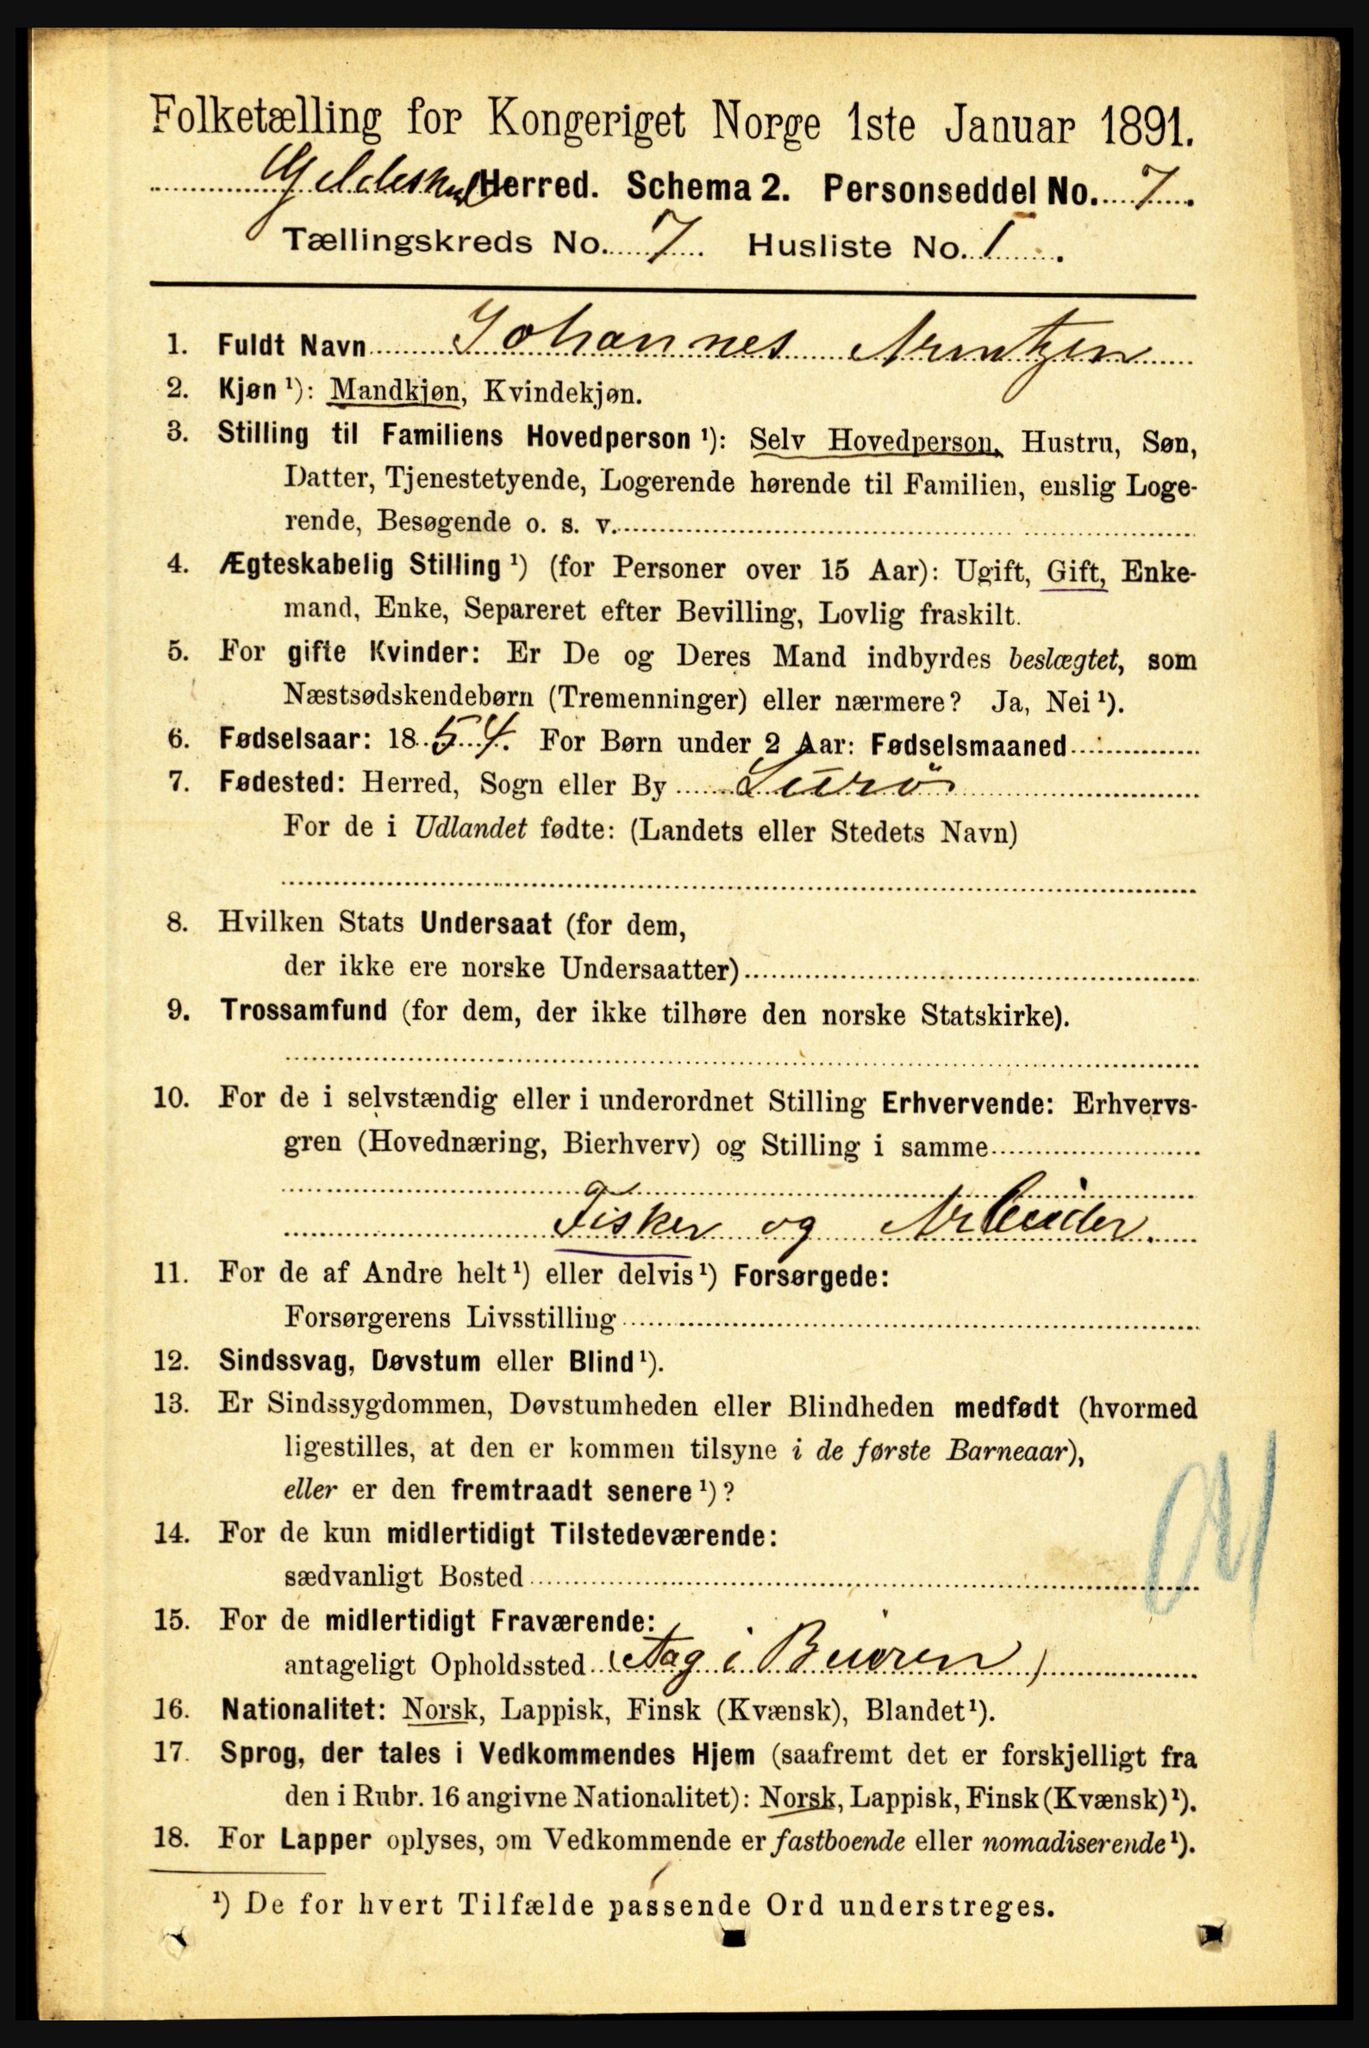 Folketælling for Kongeriget Norge 1ste Januar 1891.
Gildeskaal Herred. Schema 2. Personseddel No. 7.
Tællingskreds No. 7 Husliste No. 1.
1. Fuldt Navn Johannes Arntzen
2. Kjøn ¹): Mandkjøn, Kvindekjøn.
3. Stilling til Familiens Hovedperson ¹): Selv Hovedperson, Hustru, Søn,
Datter, Tjenestetyende, Logerende hørende til Familien, enslig Loge-
rende, Besøgende o. s. v.
4. Ægteskabelig Stilling ¹) (for Personer over 15 Aar): Ugift, Gift, Enke-
mand, Enke, Separeret efter Bevilling, Lovlig fraskilt.
5. For gifte Kvinder: Er De og Deres Mand indbyrdes beslægtet, som
Næstsødskendebørn (Tremenninger) eller nærmere? Ja, Nei ¹).
6. Fødselsaar: 1854. For Børn under 2 Aar: Fødselsmaaned
7. Fødested: Herred, Sogn eller By Lurø
For de i Udlandet fødte: (Landets eller Stedets Navn)
8. Hvilken Stats Undersaat (for dem,
der ikke ere norske Undersaatter)
9. Trossamfund (for dem, der ikke tilhøre den norske Statskirke).
10. For de i selvstændig eller i underordnet Stilling Erhvervende: Erhvervs-
gren (Hovednæring, Bierhverv) og Stilling i samme
Fisker og Arbeider.
11. For de af Andre helt ¹) eller delvis ¹) Forsørgede:
Forsørgerens Livsstilling
12. Sindssvag, Døvstum eller Blind ¹).
13. Er Sindssygdommen, Døvstumheden eller Blindheden medfødt (hvormed
ligestilles, at den er kommen tilsyne i de første Barneaar),
eller er den fremtraadt senere ¹)?
14. For de kun midlertidigt Tilstedeværende:
sædvanligt Bosted
15. For de midlertidigt Fraværende:
antageligt Opholdssted (Aag i Beiaren)
16. Nationalitet: Norsk, Lappisk, Finsk (Kvænsk), Blandet ¹).
17. Sprog, der tales i Vedkommendes Hjem (saafremt det er forskjelligt fra
den i Rubr. 16 angivne Nationalitet): Norsk, Lappisk, Finsk (Kvænsk) ¹).
18. For Lapper oplyses, om Vedkommende er fastboende eller nomadiserende ¹).
¹) De for hvert Tilfælde passende Ord understreges.